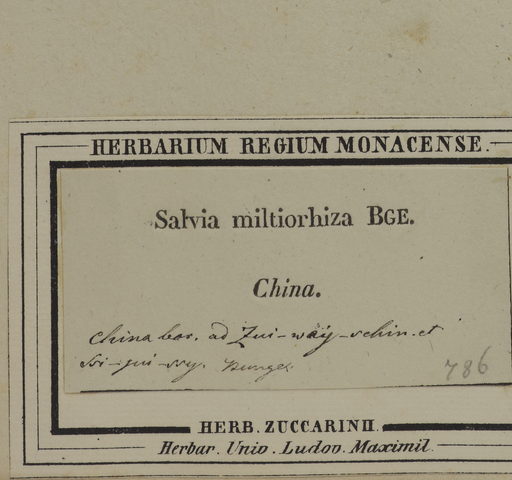 HERBARIUM REGIUM MONACENSE.
Salvia miltiorhiza BGE.
China.
China bor. ad Zui-way-schin et
Bunge
786
HERB. ZUCCARINII.
Herbar. Univ. Ludov. Maximil.